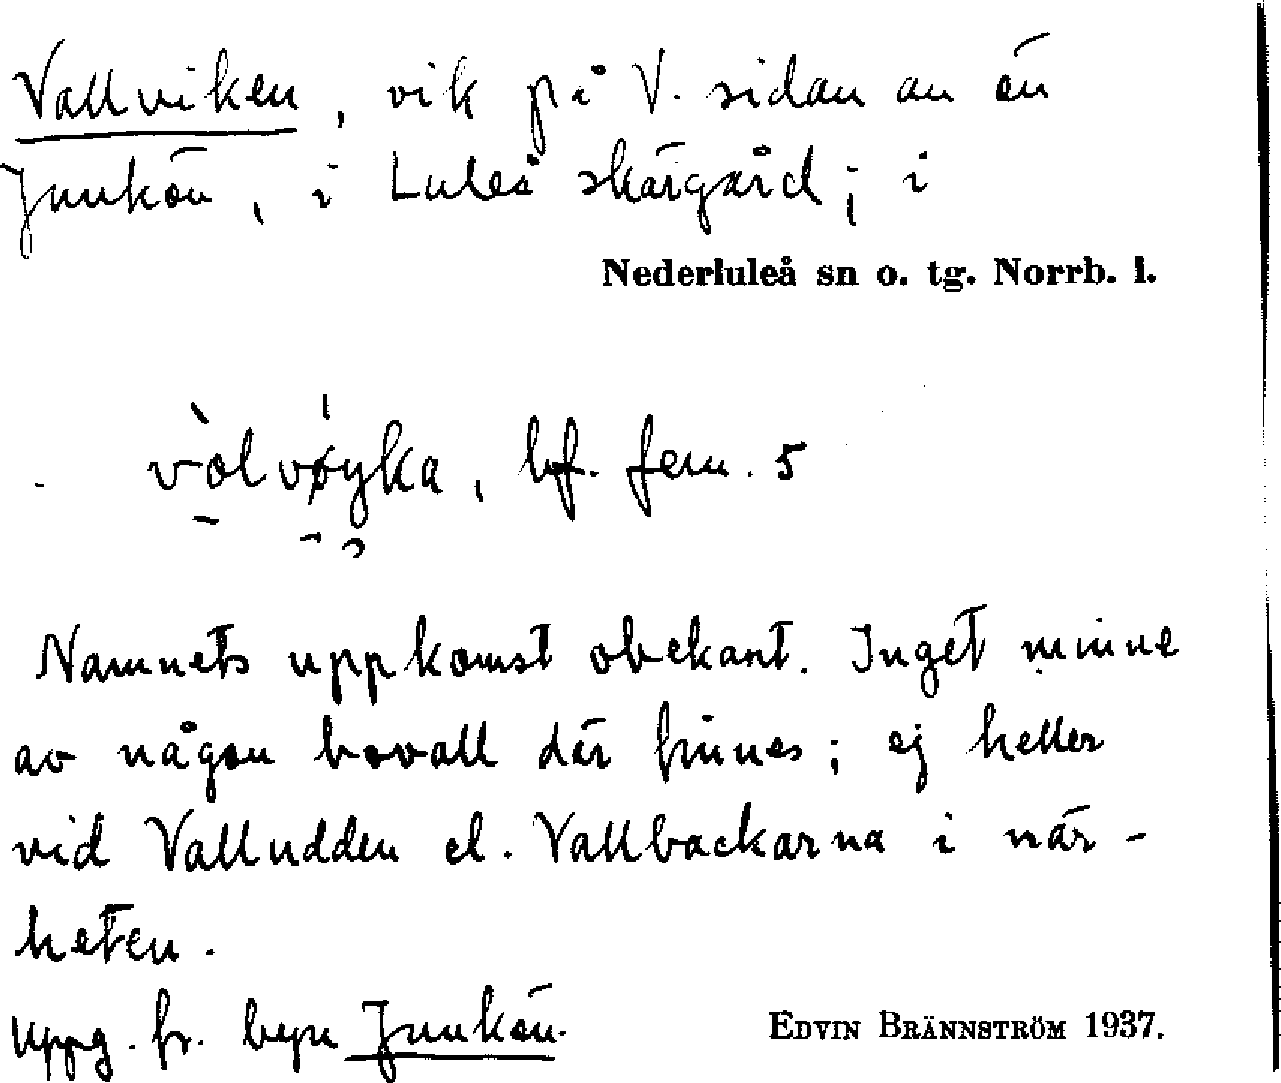 Vallviken, vik på V. sidan av ön
Junkön, i Luleå skärgård; i
Nederluleå sn o. tg. Norrb. l.
vòlvøyka, bf. fem. 5
Namnets uppkomst obekant. Inget minne
av någon bovall där finnes; ej heller
vid Valludden el. Vallbackarna i när-
heten.
Uppg. fr. byn Junkön.
EDVIN BRÄNNSTRÖM 1937.